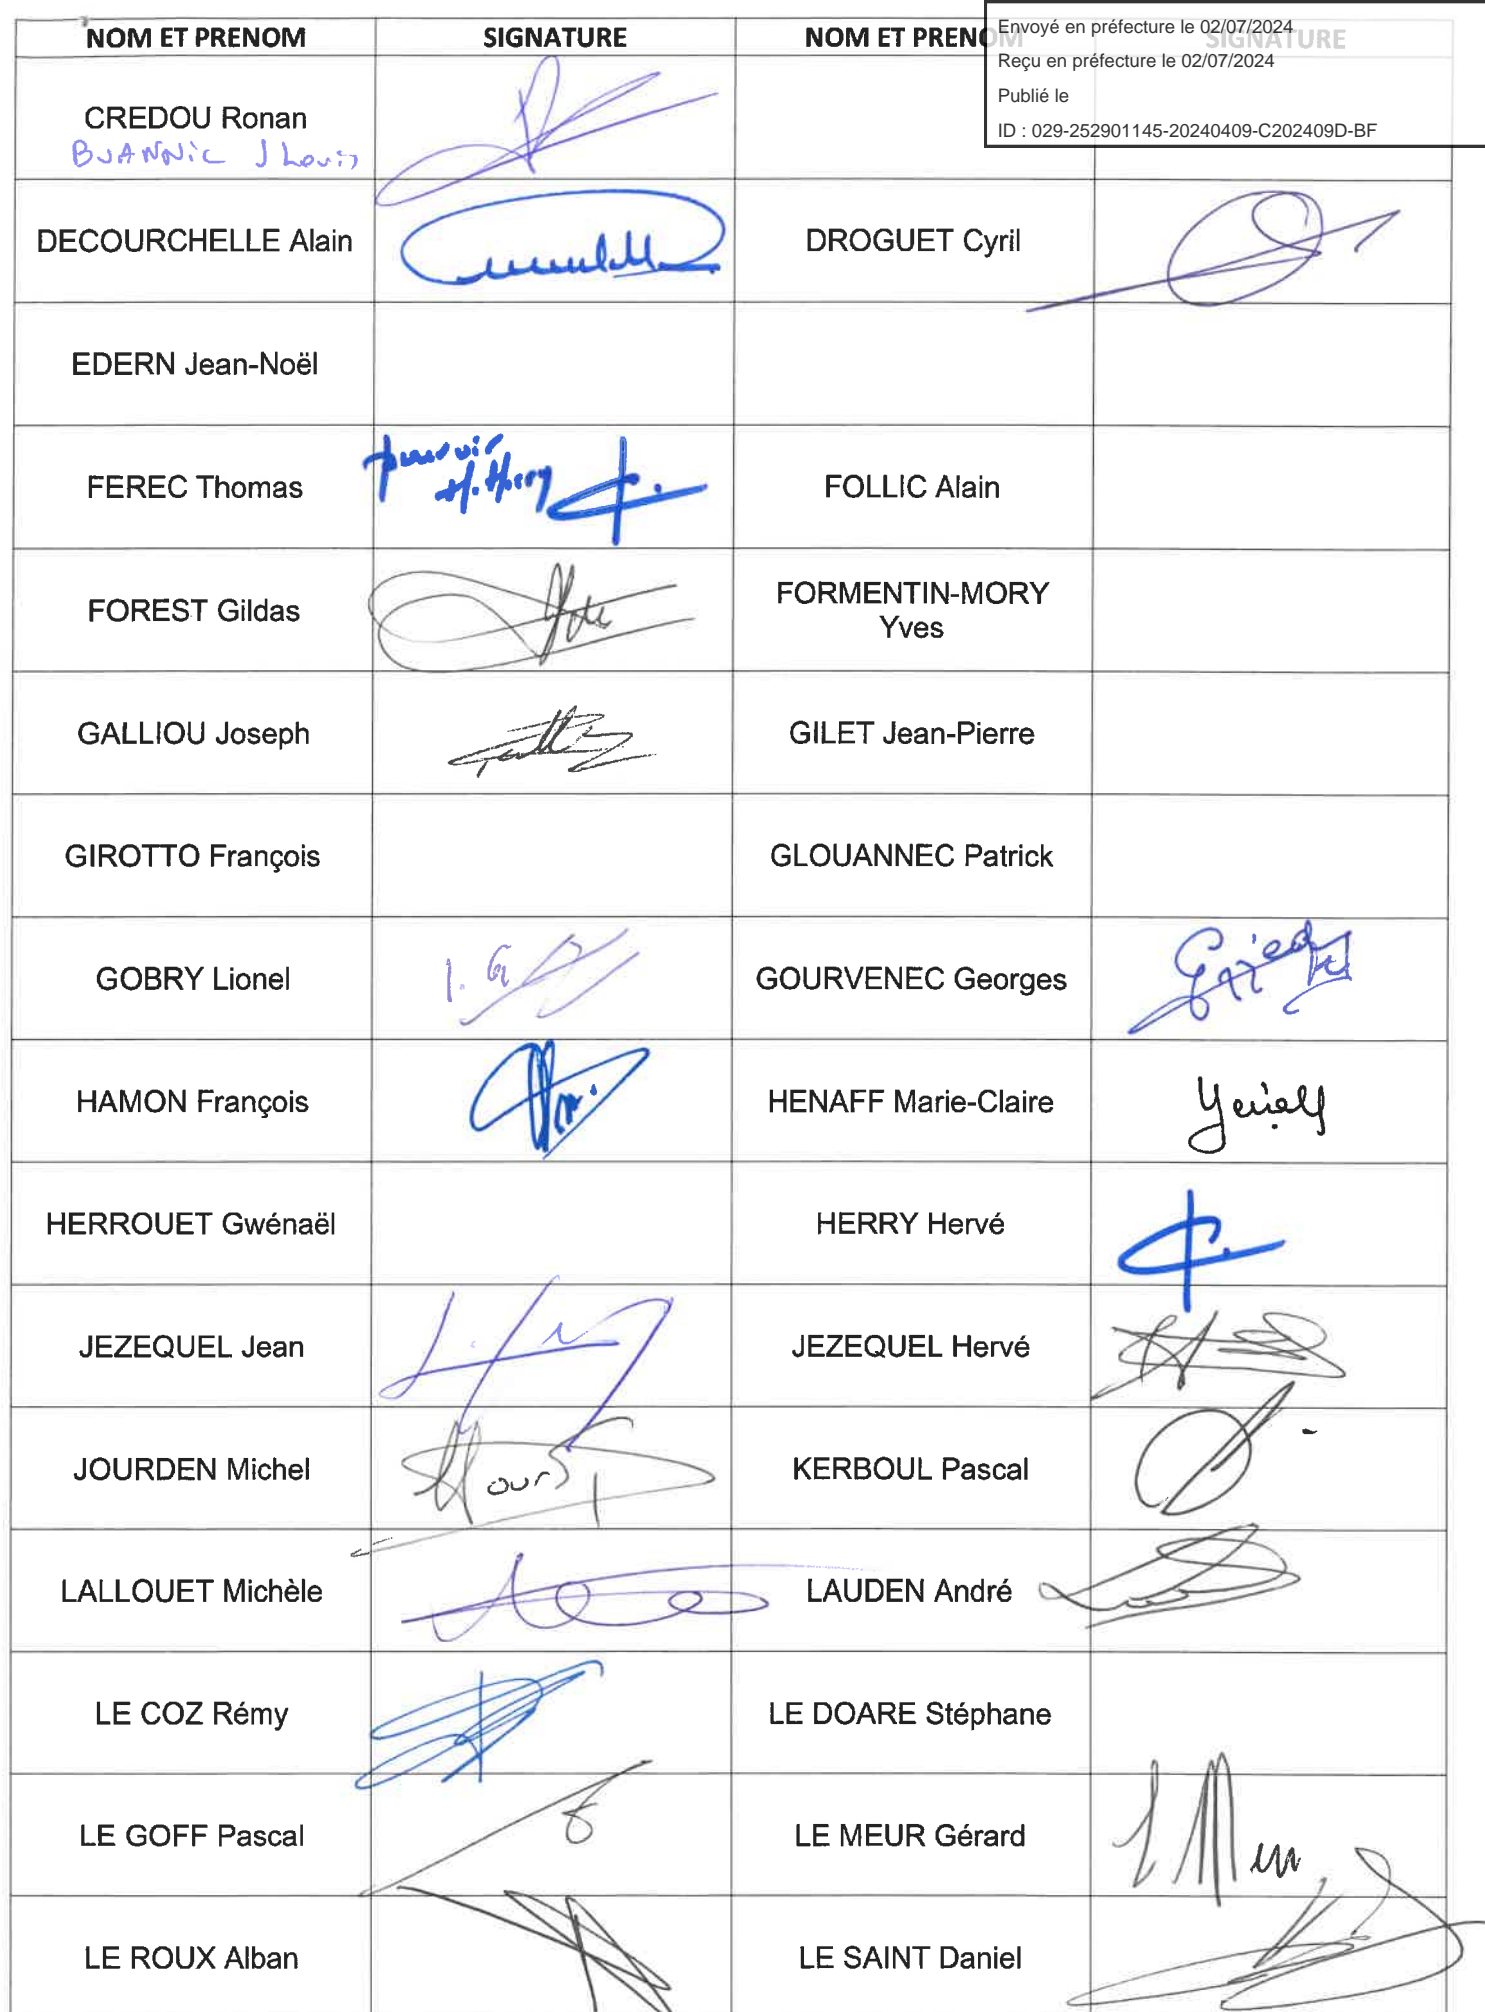 NOM ET PRENOM SIGNATURE NOM ET PRENOM SIGNATURE
Envoyé en préfecture le 02/07/2024
Reçu en préfecture le 02/07/2024
Publié le
ID : 029-252901145-20240409-C202409D-BF
CREDOU Ronan
BUANNIC J Louis
DECOURCHELLE Alain DROGUET Cyril
EDERN Jean-Noël
FEREC Thomas pouvoir FOLLIC Alain
H. Herry
FOREST Gildas FORMENTIN-MORY
Yves
GALLIOU Joseph GILET Jean-Pierre
GIROTTO François GLOUANNEC Patrick
GOBRY Lionel GOURVENEC Georges
HAMON François HENAFF Marie-Claire
HERROUET Gwénaël HERRY Hervé
JEZEQUEL Jean JEZEQUEL Hervé
JOURDEN Michel KERBOUL Pascal
LALLOUET Michèle LAUDEN André
LE COZ Rémy LE DOARE Stéphane
LE GOFF Pascal LE MEUR Gérard
LE ROUX Alban LE SAINT Daniel